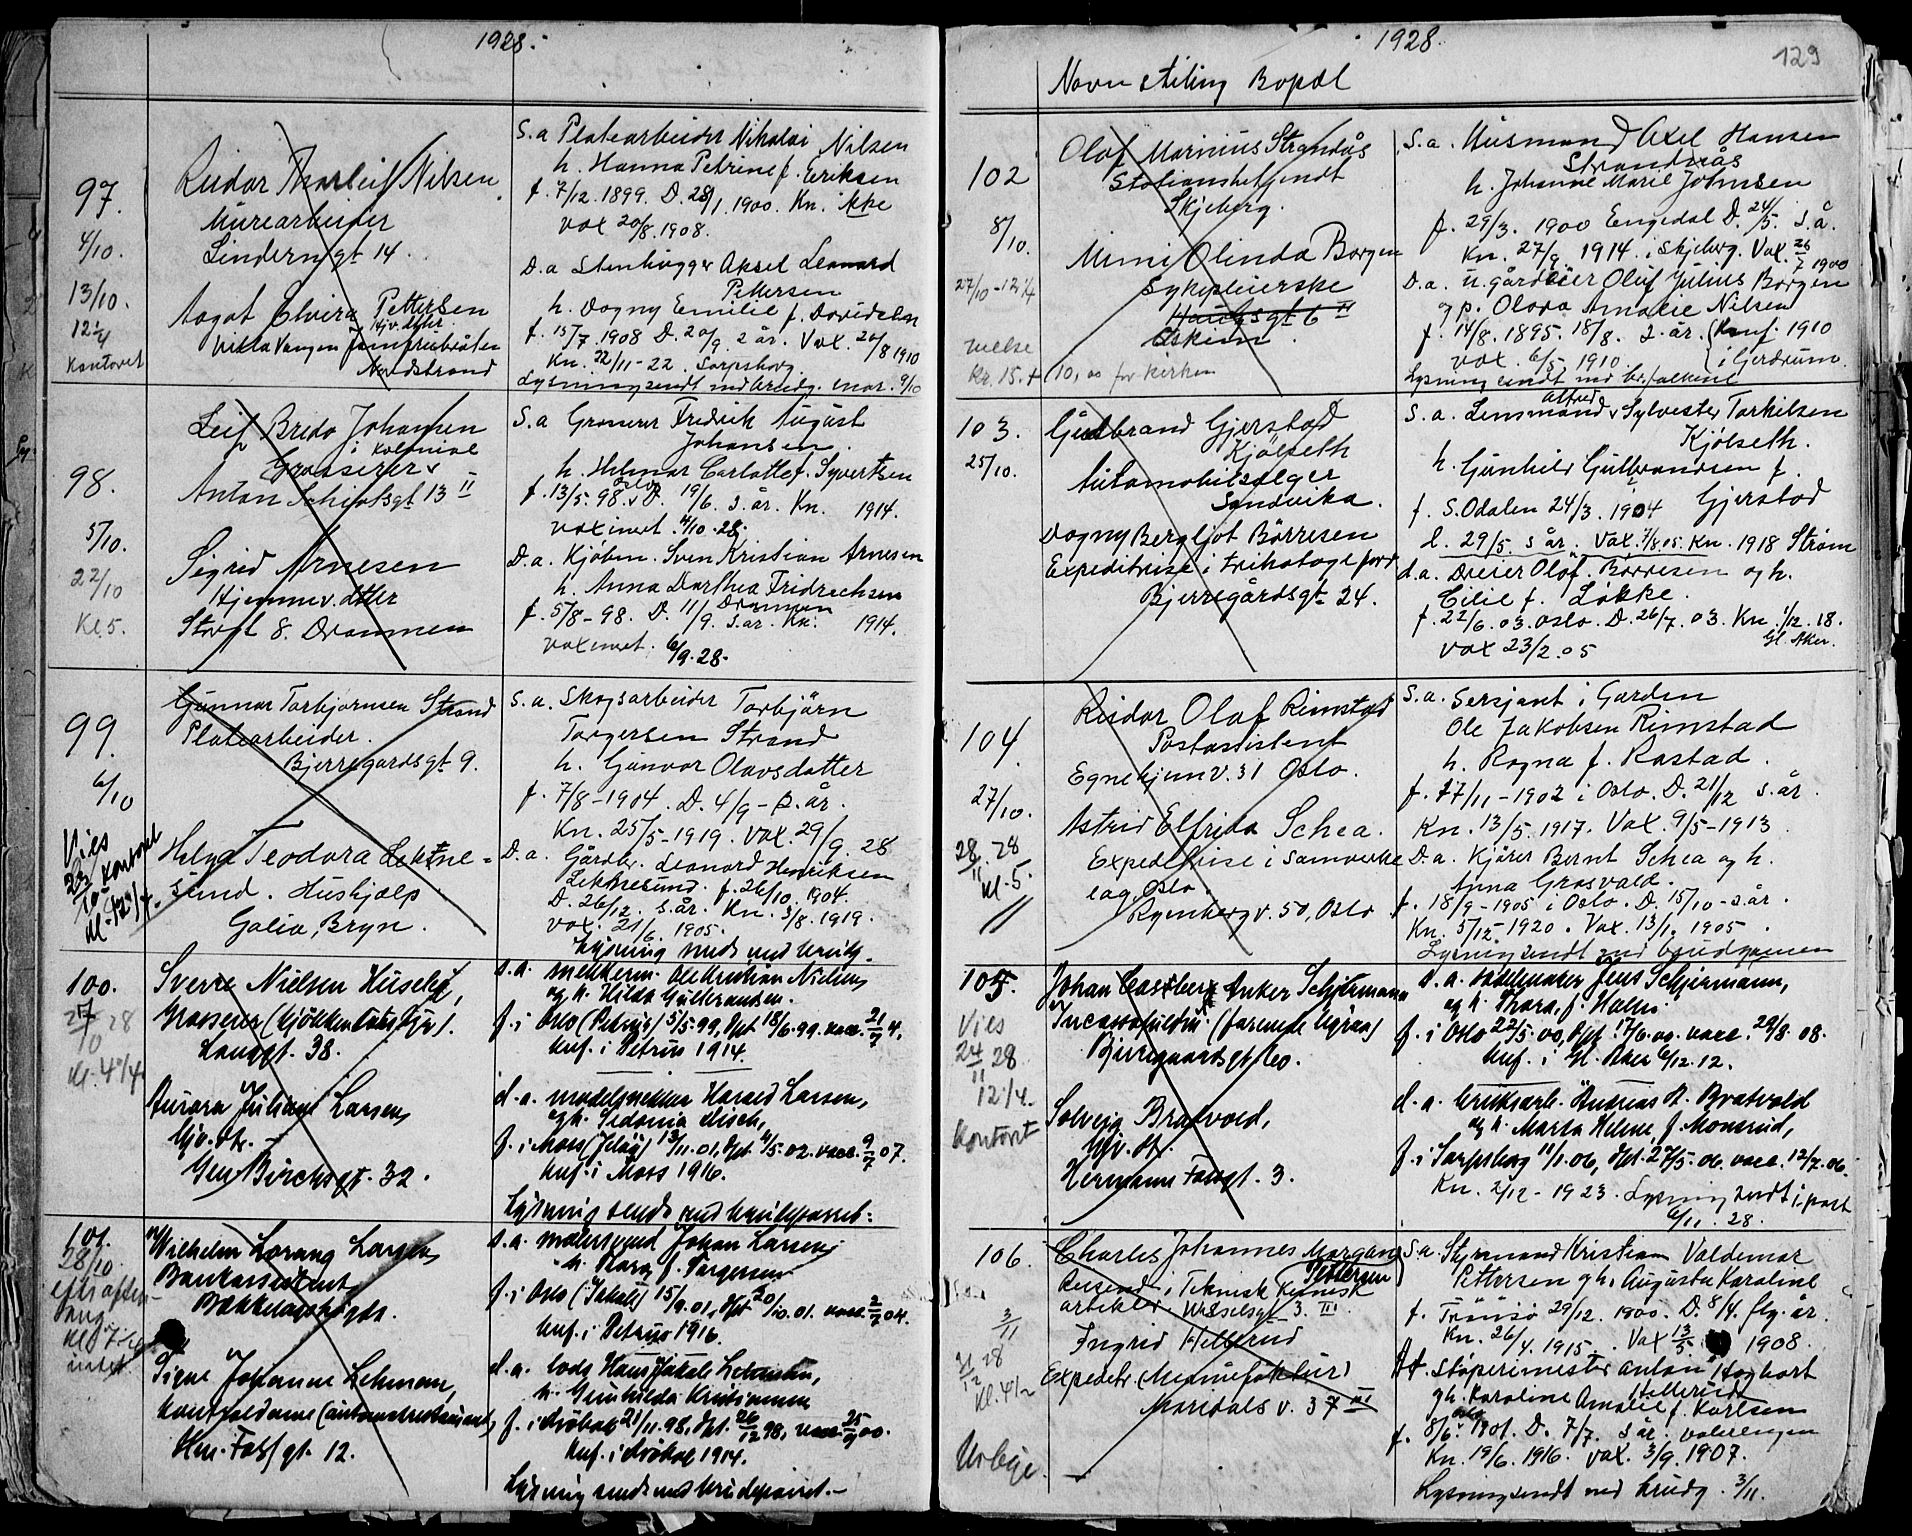 1928.
97.
4/10.
13/10.
12 1/4
Kontoret
Reidar Thorleif Nilsen
Murearbeider
Linderngt 14
Aagot Elvira Pettersen
Hjv. dtter
Nordstrand
S. a Platearbeider Nikolai Nilsen
h. Hanna Petrine f. Eriksen
f. 7/12. 1899. D. 28/1. 1900. Kn. ikke
Vax 20/8. 1908.
D. a Stenhugger Aksel Leonard
Pettersen
h. Dagny Emilie f. Davidsen
f. 15/7. 1908 D. 20/9. s år. Vax. 20/8 1910
Kn. 22/11-22. Sarpsborg.
Lysning sendt med brudg. mor. 9/10
98.
5/10.
22/10
Kl 5.
Leif Bredo Johansen
i Kolonial
Grosserer
Anton Schjøtsgt 13 II
Sigrid Arnesen
Hjemmev. dtter
Storgt 8. Drammen
S. a Fredrik August
Johansen.
h. Helmar Carlotte f. Syvertsen
f. 13/5. 98. Oslo D. 19/6. s. år. Kn. 1914.
vax invet. 4/10. 28.
D. a. Kjøbm. Sven Kristian Arnesen
h. Anna Dorthea Fredrechsen
f. 5/8-98. D. 11/9. Drammen s. år. Kn. 1914.
vax invet. 6/9. 28.
99.
6/10
Vies
på kontoret
Gunnar Torbjørnsen Strand
Platearbeider.
Bjerregardsgt 9.
Helga Teodora Lekne-
sund. Hushjælp
Galia, Bryn.
S. a. Skogsarbeider Torbjörn
Torgersen Strand
h. Gunvor Olavsdatter
f. 7/8-1904. D. 4/9- s. år.
Kn. 25/5-1919. Vax. 29/9. 28
D. a. Gårdbr. Leonard Henriksen
Leknesund. f. 26/10. 1904.
D. 26/12. s. år. Kn. 3/8. 1919.
vax. 21/6. 1905.
Lysning sends med brudg.
100.
27/10 28
kl. 4 3/4
Sverre Nielsen Huseby,
Grosserer
Langgt. 38.
Aurora Juliane Larsen,
hjv. dt. -
Gen Birchsgt. 32.
s. a. mekkerm. Ole Kristian Nielsen
og h. Hilda Gulbrandsen.
f. i Oslo (Petrus) 5/5. 99, dpt 18/6. 99. vacc. 21/7 4.
knf. i Petrus 1914.
d. a. modelsnekker Harald Larsen,
og h. Sidonia Misch,
f. i Moss (Jeløy) 13/11. 01, dpt. 4/5. 02. vacc. 9/7 07.
knf. i Moss 1916.
Lysning sends med brudeparret.
101.
28/10
Wilhelm Lorang Larsen,
Bankassistent
Bækkelagshögda.
Signe Johanne Lehmann,
kontordame
Hm. Fossgt. 12.
s. a. malersvend Johan Larsen,
h. Borg f. Torgersen
f. i Oslo (Jakob) 15/9. 01, dpt 20/10. 01. vacc. 2/7 04.
knf. i Petrus 1916.
d. a. lods Hans Jakob Lehmann,
h. Gunhilda Kristiansen
f. i Drøbak 21/11. 98, dpt. 26/12 98, vacc. 25/9 00.
knf. i Drøbak 1914.
Lysning sends med brudeparret. -
1928.
129
Navn stiling Bopæl
102
8/10.
27/10-12 1/4
vielse
Kr. 15. + 10,00 for kirken
Olaf Marinius Strandås
Stationsbetjent
Skjeberg.
Mimi Olinda Borgen
Sykepleierske
Askim.
S. a. Husmand Axel Hansen
Strandås
h. Johanne Marie Johnsen
f. 29/3. 1900 Engedal D. 24/5. s. å.
Kn. 27/9. 1914. i Skjeberg. Vax. 26/7 1900
D. a. u. gårdeier Oluf Julius Borgen
og p. Olava Amalie Nilsen
f. 14/8. 1895. 18/8. s. år. (Konf. 1910
vax. 6/5 1910. i Gjerdrum
103.
25/10.
Gudbrand Gjerstad
Kjölseth
Automobilselger
Sandvika.
Dagny Bergljot Börresen
Expeditrise i trikotage forr
Bjerregårdsgt 24.
S. a. Lensmand Alfred Sylvester Torkilsen
Kjölseth.
h. Gunhild Gulbrandsen f.
Gjerstad
f. S. Odalen 24/3. 1904
d. 29/5. s år. Vax. 7/8. 05. Kn. 1918 Strøm
d. a. Dreier Olof Börresen og h.
Cilie f. Løkke.
f. 22/6. 03. Oslo. D. 26/7. 03. Kn. 1/12. 18.
Gl. Aker.
Vax 23/2. 05
104.
27/10.
28/11. 28
Kl. 5.
Reidar Olaf Rimstad
Postassistent
Egnehjemv. 31 Oslo.
Astrid Elfrida Schea.
Expeditrise i samvirke
lag Oslo.
Ryenbergv. 50, Oslo
S. a. Sersjant i Garden
Ole Jakobsen Rimstad
h. Ragna f. Rastad.
f. 17/11-1902 i Oslo. D. 21/12 s. år.
Kn. 13/5. 1917. Vax. 9/5-1913
D. a. Kjører Bernt Schea og h.
Anna Grasvald.
f. 18/9-1905 i Oslo. D. 15/10-s. år.
Kn. 5/12-1920. Vax. 13/1. 1905.
Lysning sendt med brudgommen
105.
Vies
24/11 28
12 1/4.
Kontoret
Johan Castberg Anker Schjermann
Bjerregaardsgt 60.
Solveig Bratvold,
hjv. dt.
Hermann Fossgt. 3.
s. a. sadelmaker Jens Schjermann,
og h. Thora, f. Holm.
f. i Oslo 22/5. 00, dpt. 17/6. 00. vacc. 29/8. 08.
knf. i Gl. Aker 6/12. 12.
d. a. bruksarb. Andreas A. Bratvold
og h. Marta Helene f. Monsrud,
f. i Sarpsborg 11/1. 06, dpt. 27/5. 06. vacc. 12/7. 06.
Kn. 2/12-1923. Lysning sendt i post
6/11. 28.
106.
3/11
21/12 28
kl. 4 1/2
Charles Johannes Morgan
Pettersen
Reisend. i Teknisk Kemisk
artikler. III
Ingrid Hellerud
Expeditr. (Manufaktur)
Maridals v. 37 III
S. a. Styrmand Kristian Valdemar
Pettersen gh. Augusta Karoline
f. Tromsö 29/12. 1900. D. 8/4. flg. år.
Kn. 26/4. 1915. Vax 13/5 1908.
støperimester Anton Hagbart
Hellerud
gh. Karoline Amalie f. Karlsen
f. 8/6. 1901. D. 7/7. s år. Valerengen
Kn. 19/6. 1916. vax. 3/9. 1907.
Lysning sendt med brudg. 3/11.